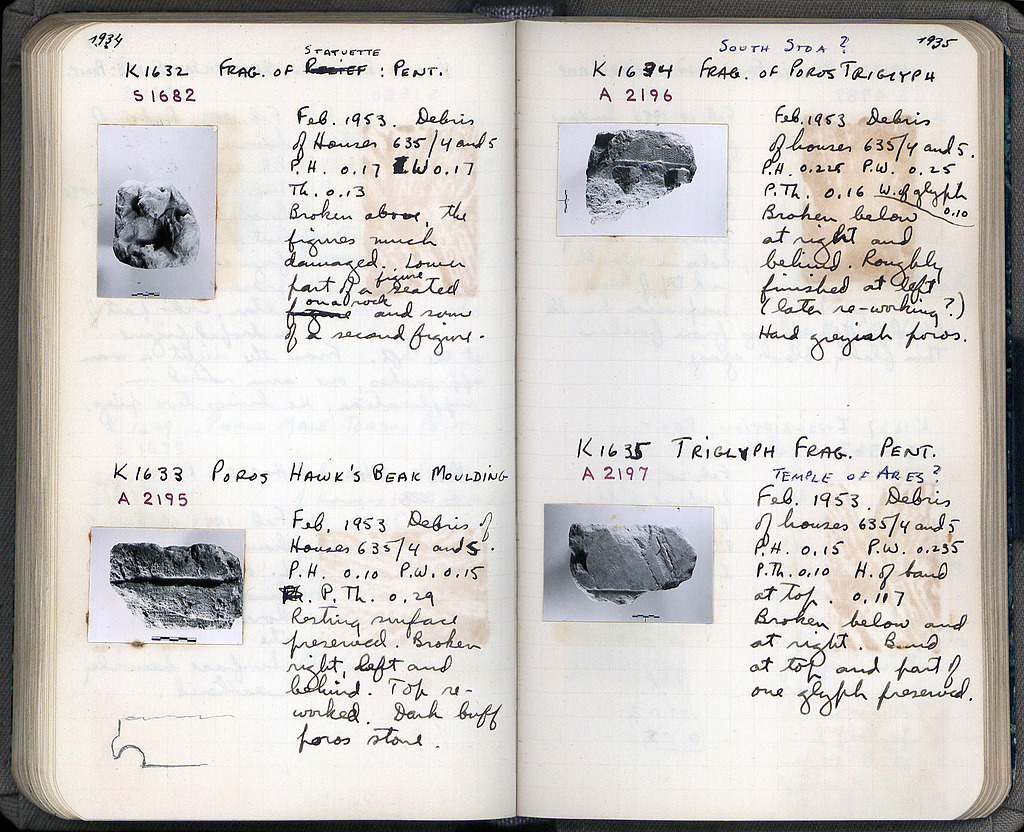 1934
STATUETTE
K 1632 FRAG. OF RELIEF : PENT.
S 1682
Feb. 1953. Debris
of Houses 635/4 and 5
P.H. 0.17 W 0.17
Th. 0.13
Broken above, the
figures much
damaged. Lower
part of a figure seated
figure on a rock and some
of a second figure.
K 1633 POROS HAWK'S BEAK MOULDING
A 2195
Feb. 1953 Debris of
Houses 635/4 and 5.
P.H. 0.10 P.W. 0.15
P. Th. 0.29
Resting surface
preserved. Broken
right, left and
behind. Top re-
worked. Dark buff
poros stone.
1935
SOUTH STOA ?
K 1634 FRAG. OF POROS TRIGLYPH
A 2196
Feb. 1953 Debris
of houses 635/4 and 5.
P.H. 0.225 P.W. 0.25
P.Th. 0.16 W. of glyph
0.10
Broken below
at right and
behind. Roughly
finished at left
(later re-working?)
Hard greyish poros.
K 1635 TRIGLYPH FRAG. PENT.
A 2197 TEMPLE OF ARES ?
Feb. 1953. Debris
of houses 635/4 and 5
P.H. 0.15 P.W. 0.235
P.Th. 0.10 H. of band
at top. 0.117
Broken below and
at right. Band
at top and part of
one glyph preserved.